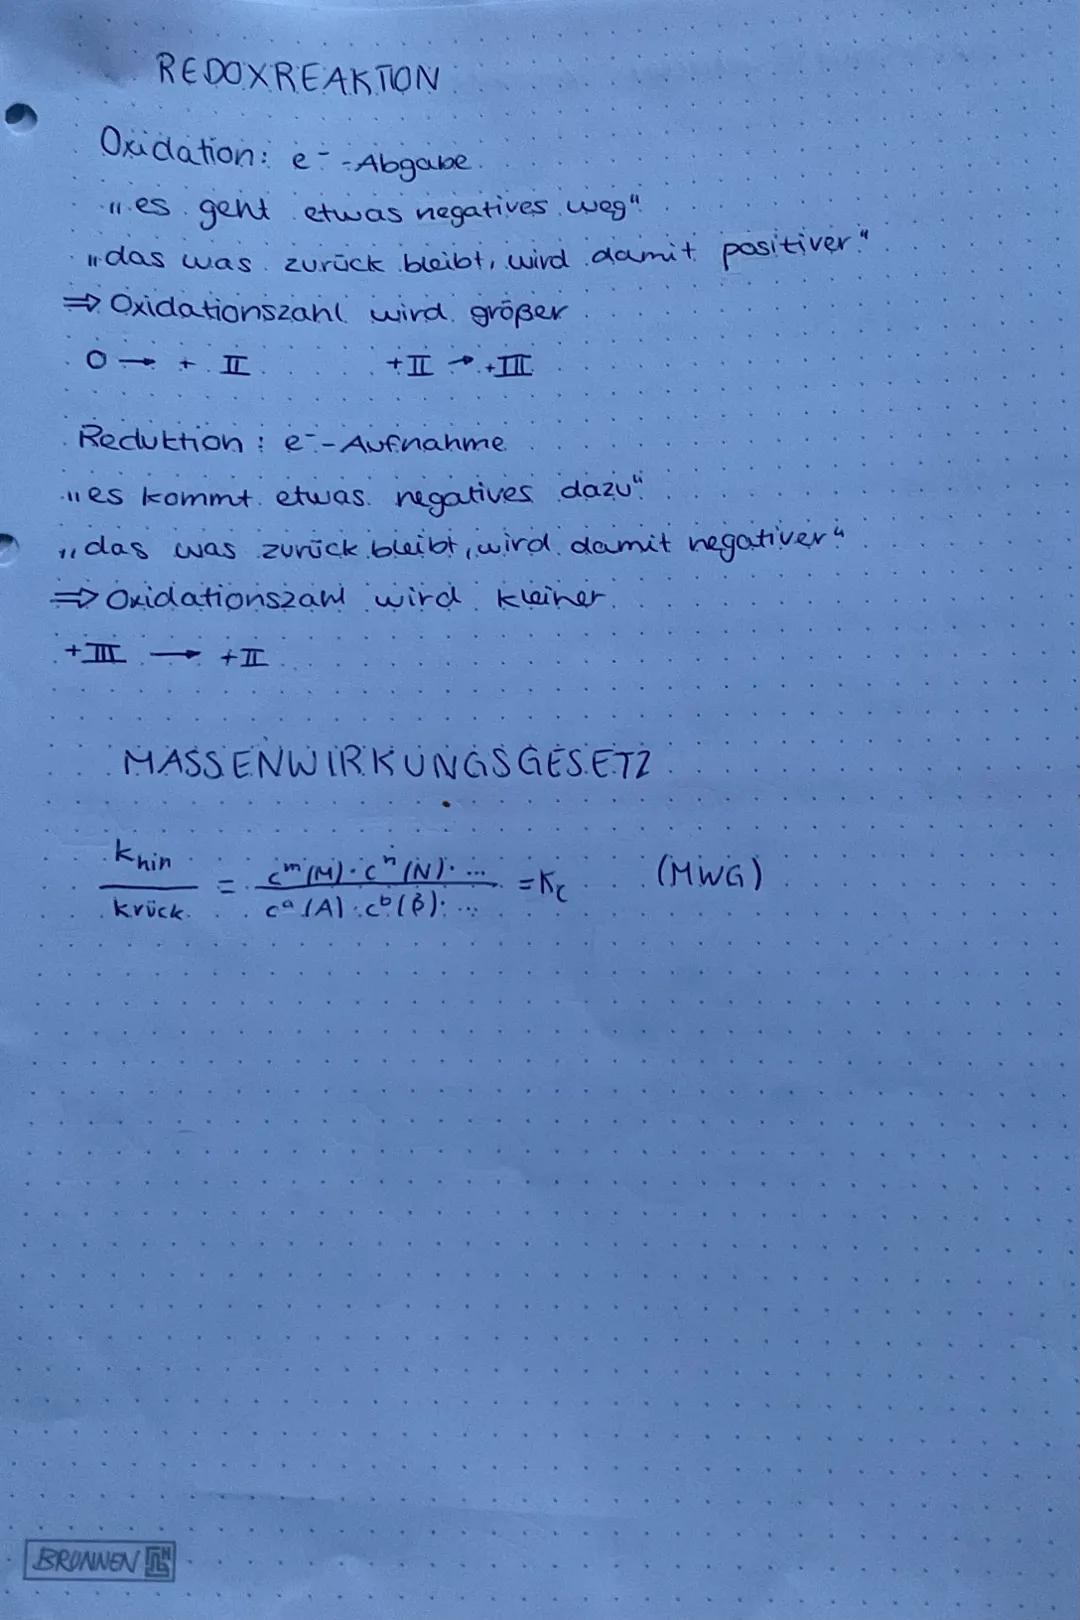 REDOXREAKTION
Oxidation: e⁻-Abgabe
„es geht etwas negatives weg“
„das was zurück bleibt, wird damit positiver“
⇒ Oxidationszahl wird größer
0 → + II +II → +III
Reduktion: e⁻-Aufnahme
„es kommt etwas negatives dazu“
„das was zurück bleibt, wird damit negativer“
⇒ Oxidationszahl wird kleiner
+III → +II
MASSENWIRKUNGSGESETZ
khin / krück = cᵐ(M)·cⁿ(N)·... / cᵃ(A)·cᵇ(B)·... = Kc (MWG)
BRUNNEN